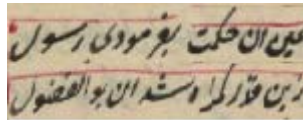 عین ان حکمت بفرمودی رسول
زین قدر کمراه شد ان بوالفضول